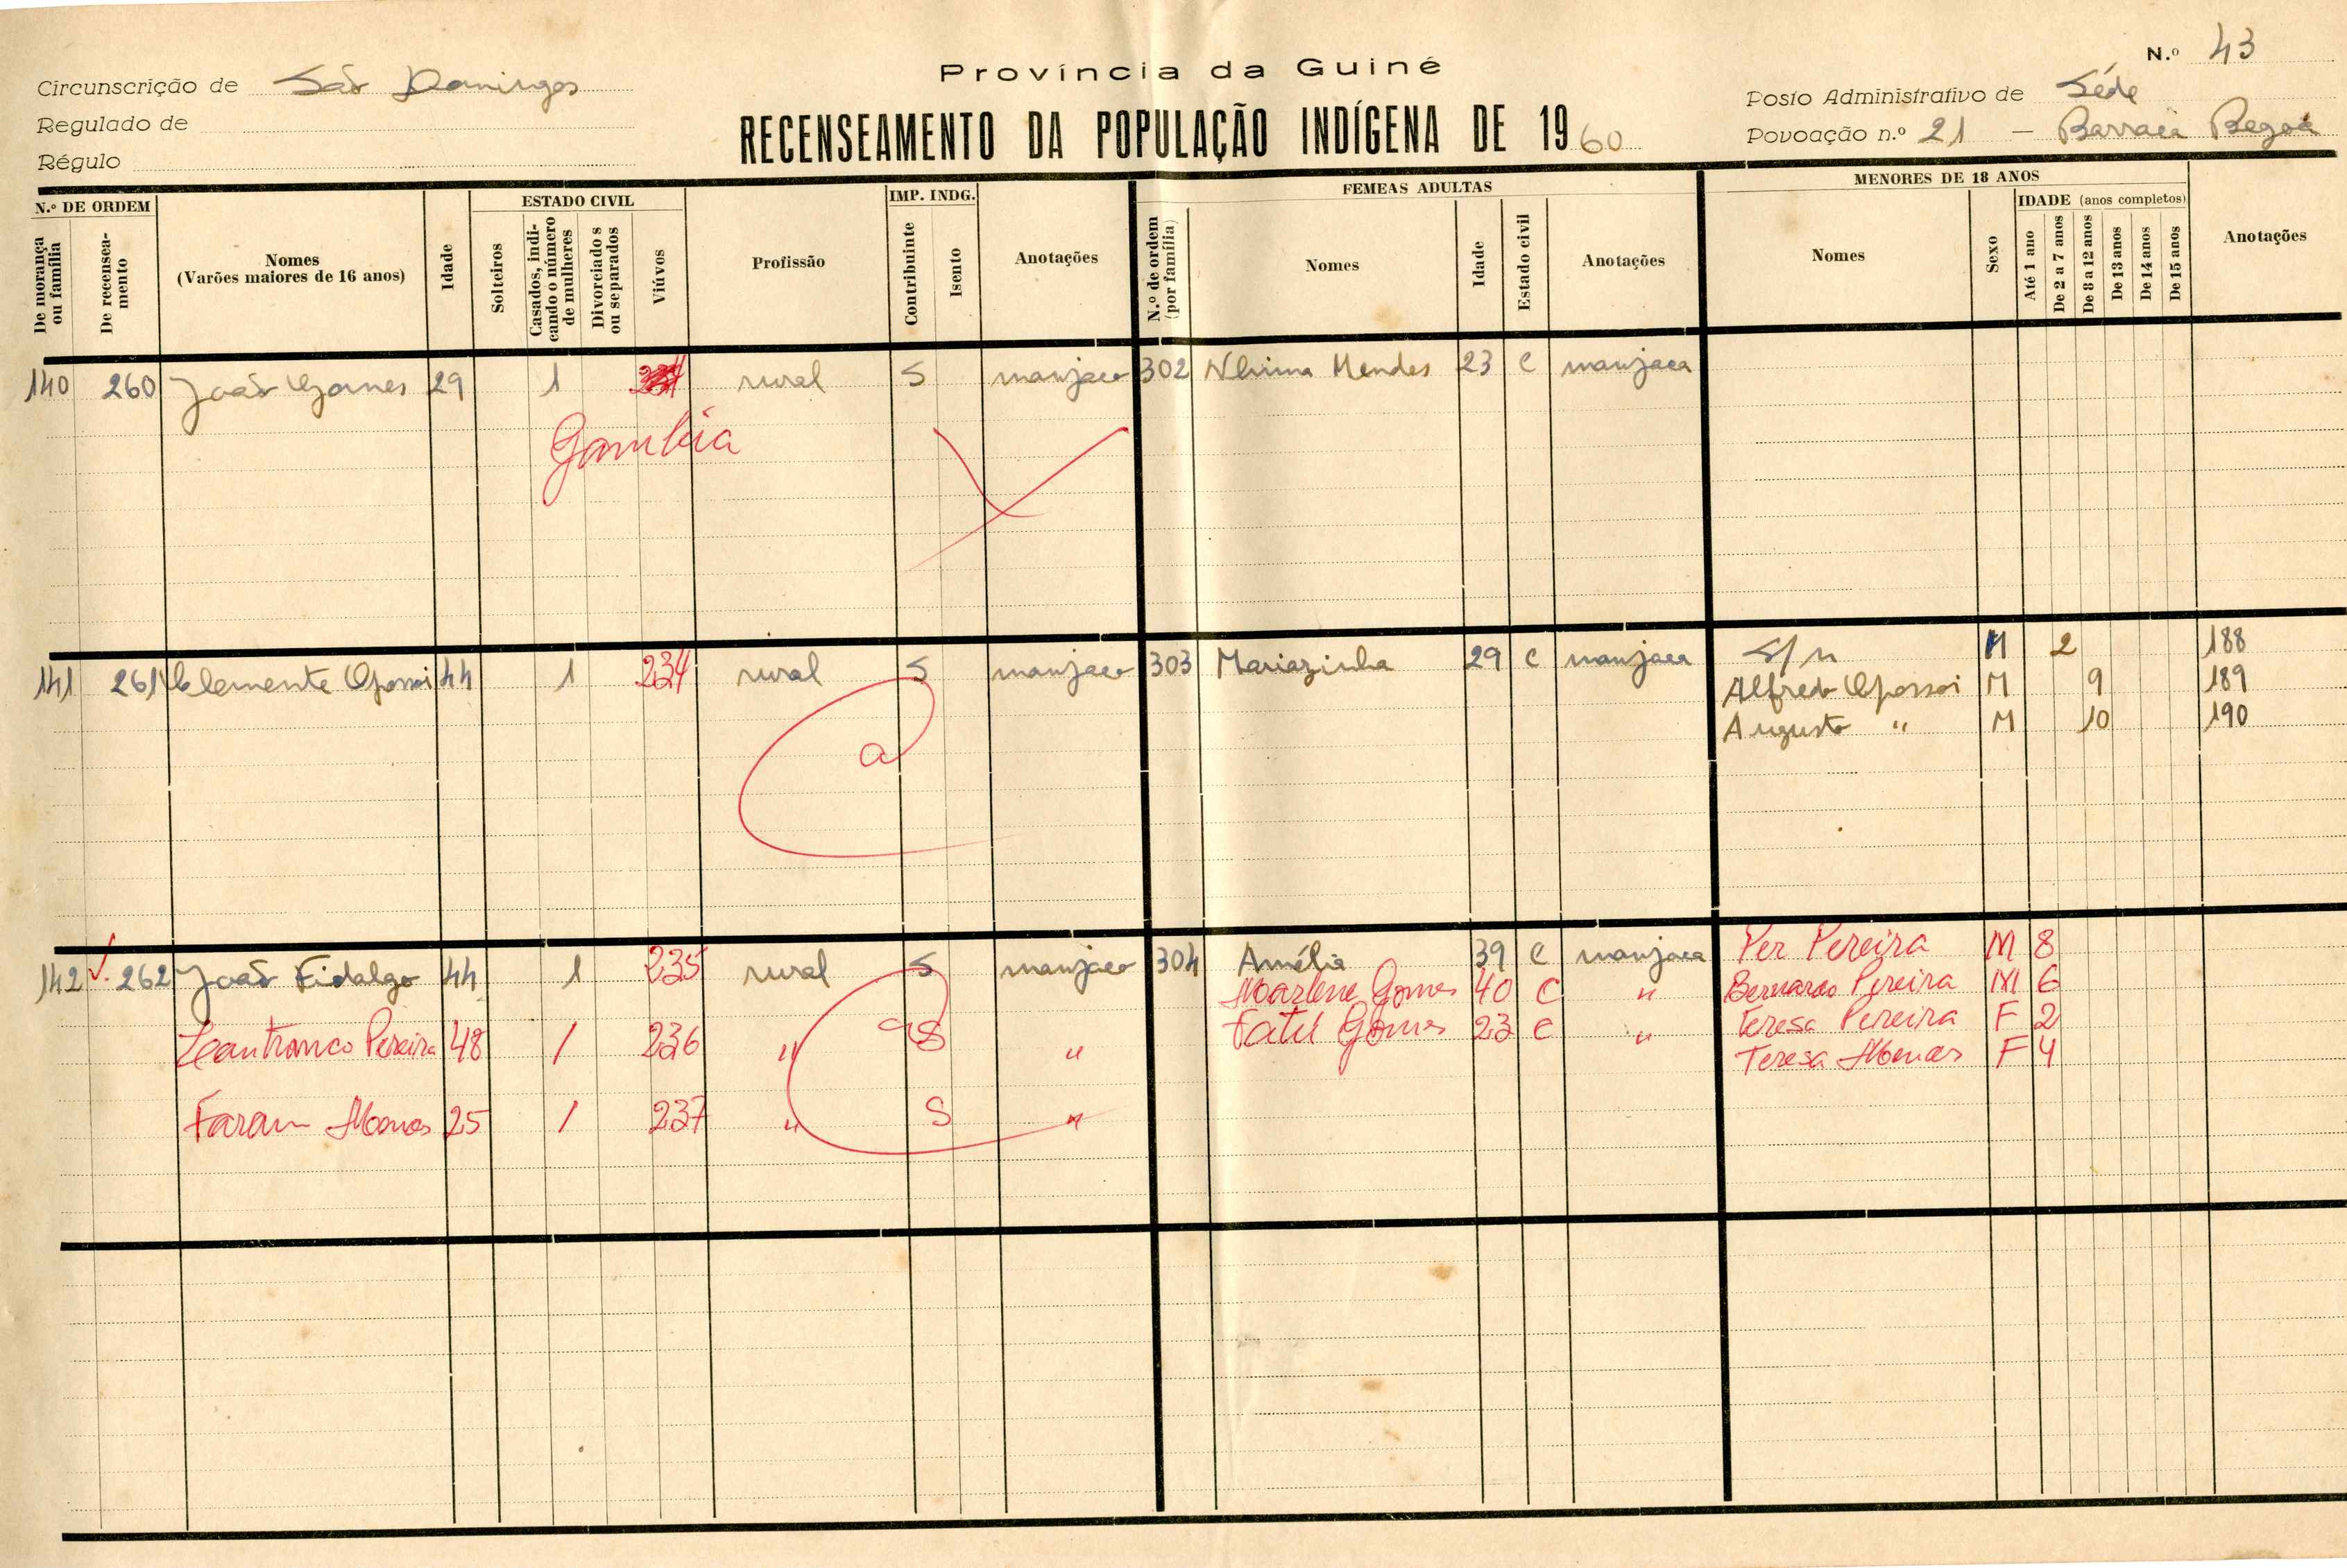 Província da Guiné
N.º 43
Circunscrição de São Domingos
Regulado de
Régulo
RECENSEAMENTO DA POPULAÇÃO INDÍGENA DE 1960
Posto Administrativo de Séde
Povoação n.º 21 — Barraca
N.º DE ORDEM
De morança ou família
De recenseamento
Nomes
(Varões maiores de 16 anos)
Idade
ESTADO CIVIL
Solteiros
Casados, indicando o número de mulheres
Divorciados ou separados
Viúvos
Profissão
IMP. INDG.
Contribuinte
Isento
Anotações
FEMEAS ADULTAS
N.º de ordem (por família)
Nomes
Idade
Estado civil
Anotações
MENORES DE 18 ANOS
Nomes
Sexo
IDADE (anos completos)
Até 1 ano
De 2 a 7 anos
De 8 a 12 anos
De 13 anos
De 14 anos
De 15 anos
Anotações
140 260 João Gomes 29 1 rural S manjaco 302 Mendes 23 C manjaca
Gambia
141 261 Clemente 44 1 234 rural S manjaco 303 Mariazinha 29 C manjaca S/n M 2 188
Alfredo M 9 189
a Augusto " M 10 190
142 262 João Fidalgo 44 1 235 rural S manjaco 304 Amélia 39 C manjaca Per Pereira M 8
Marlene Gomes 40 C " Bernardo Pereira M 6
Pereira 48 / 236 " S " Fatú Gomes 23 C " Teresa Pereira F 2
Teresa F 4
25 / 237 " S "